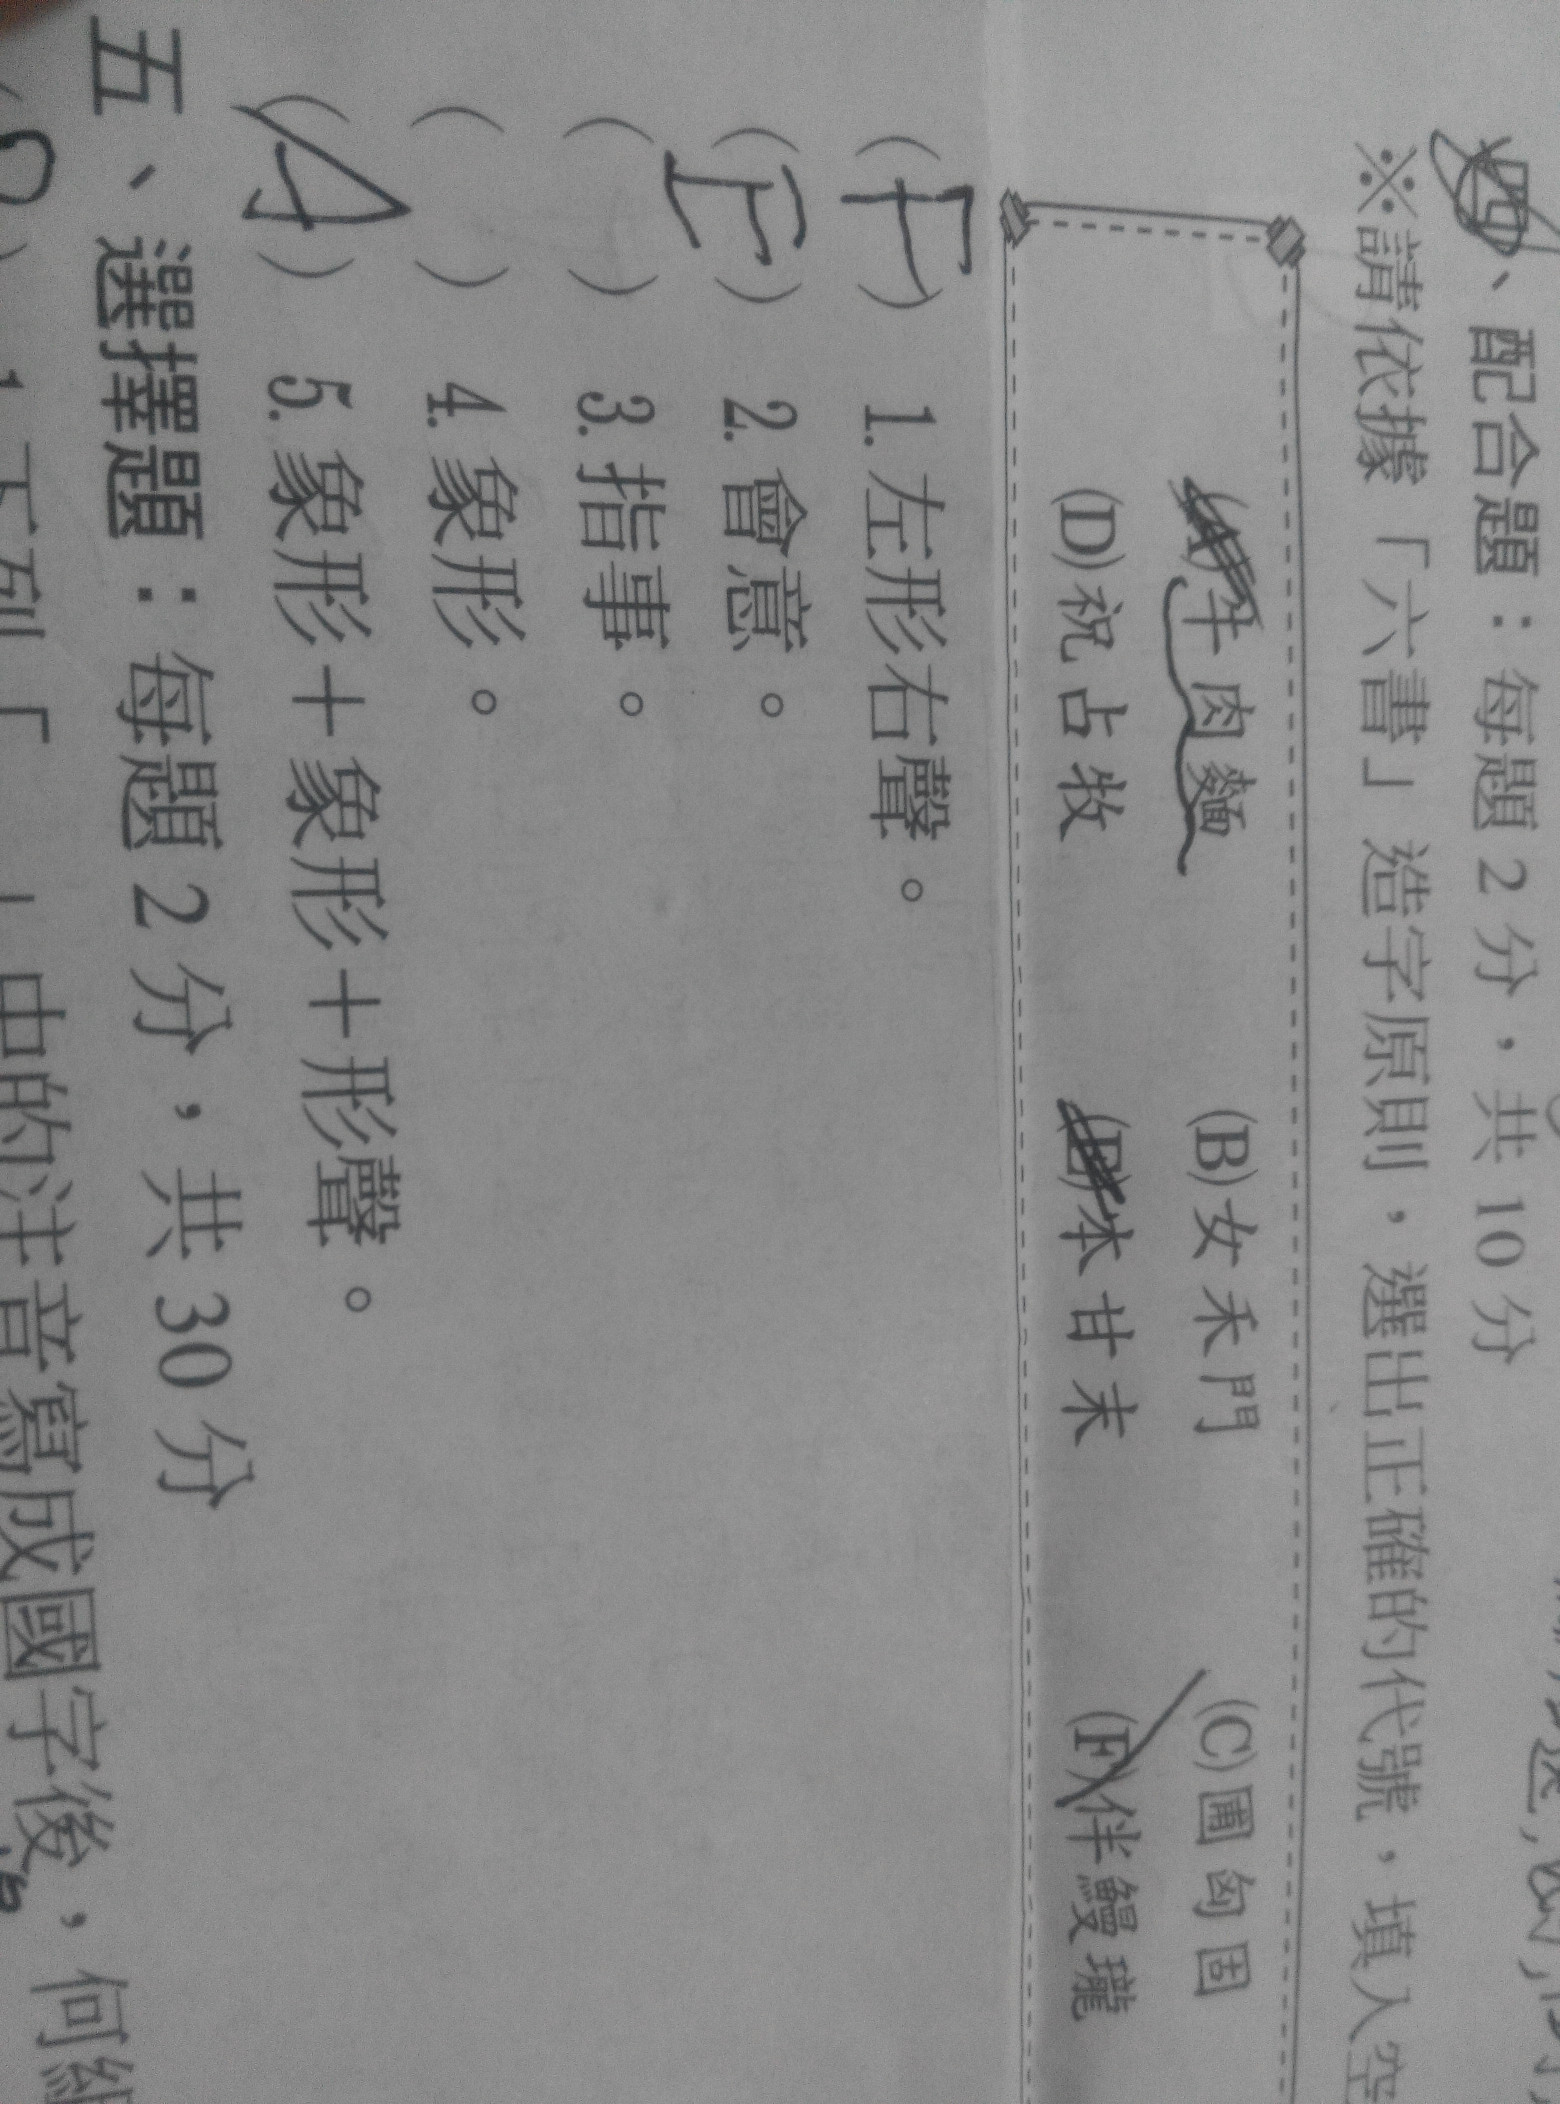 四、配合題：每題 2 分，共 10 分
※請依據「六書」造字原則，選出正確的代號，填入空
(A)牛肉麵 (B)女禾門 (C)圃匈固
(D)祝占牧 (E)本甘末 (F)伴鰻瓏
(F) 1. 左形右聲。
(E) 2. 會意。
( ) 3. 指事。
( ) 4. 象形。
(A) 5. 象形＋象形＋形聲。
五、選擇題：每題 2 分，共 30 分
1 下列「 」中的注音寫成國字後，何組